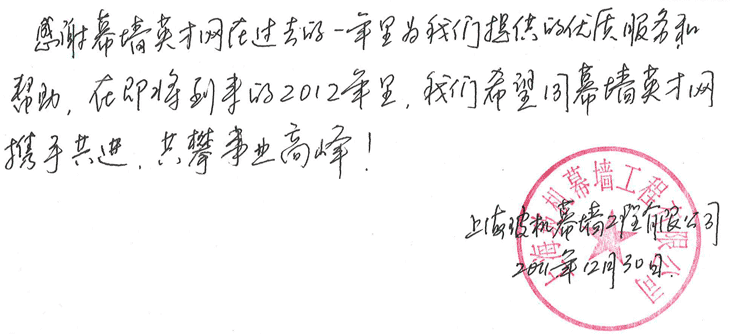 感谢幕墙英才网在过去的一年里为我们提供的优质服务和
帮助，在即将到来的2012年里，我们希望同幕墙英才网
携手共进，共攀事业高峰！
上海玻机幕墙工程有限公司
2011年12月30日
上海玻机幕墙工程有限公司